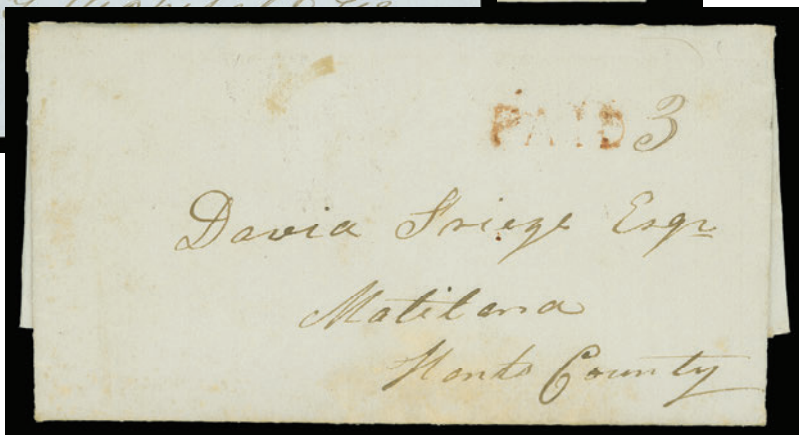 PAID 3
David Frieze Esqr
Maitland
Hants County